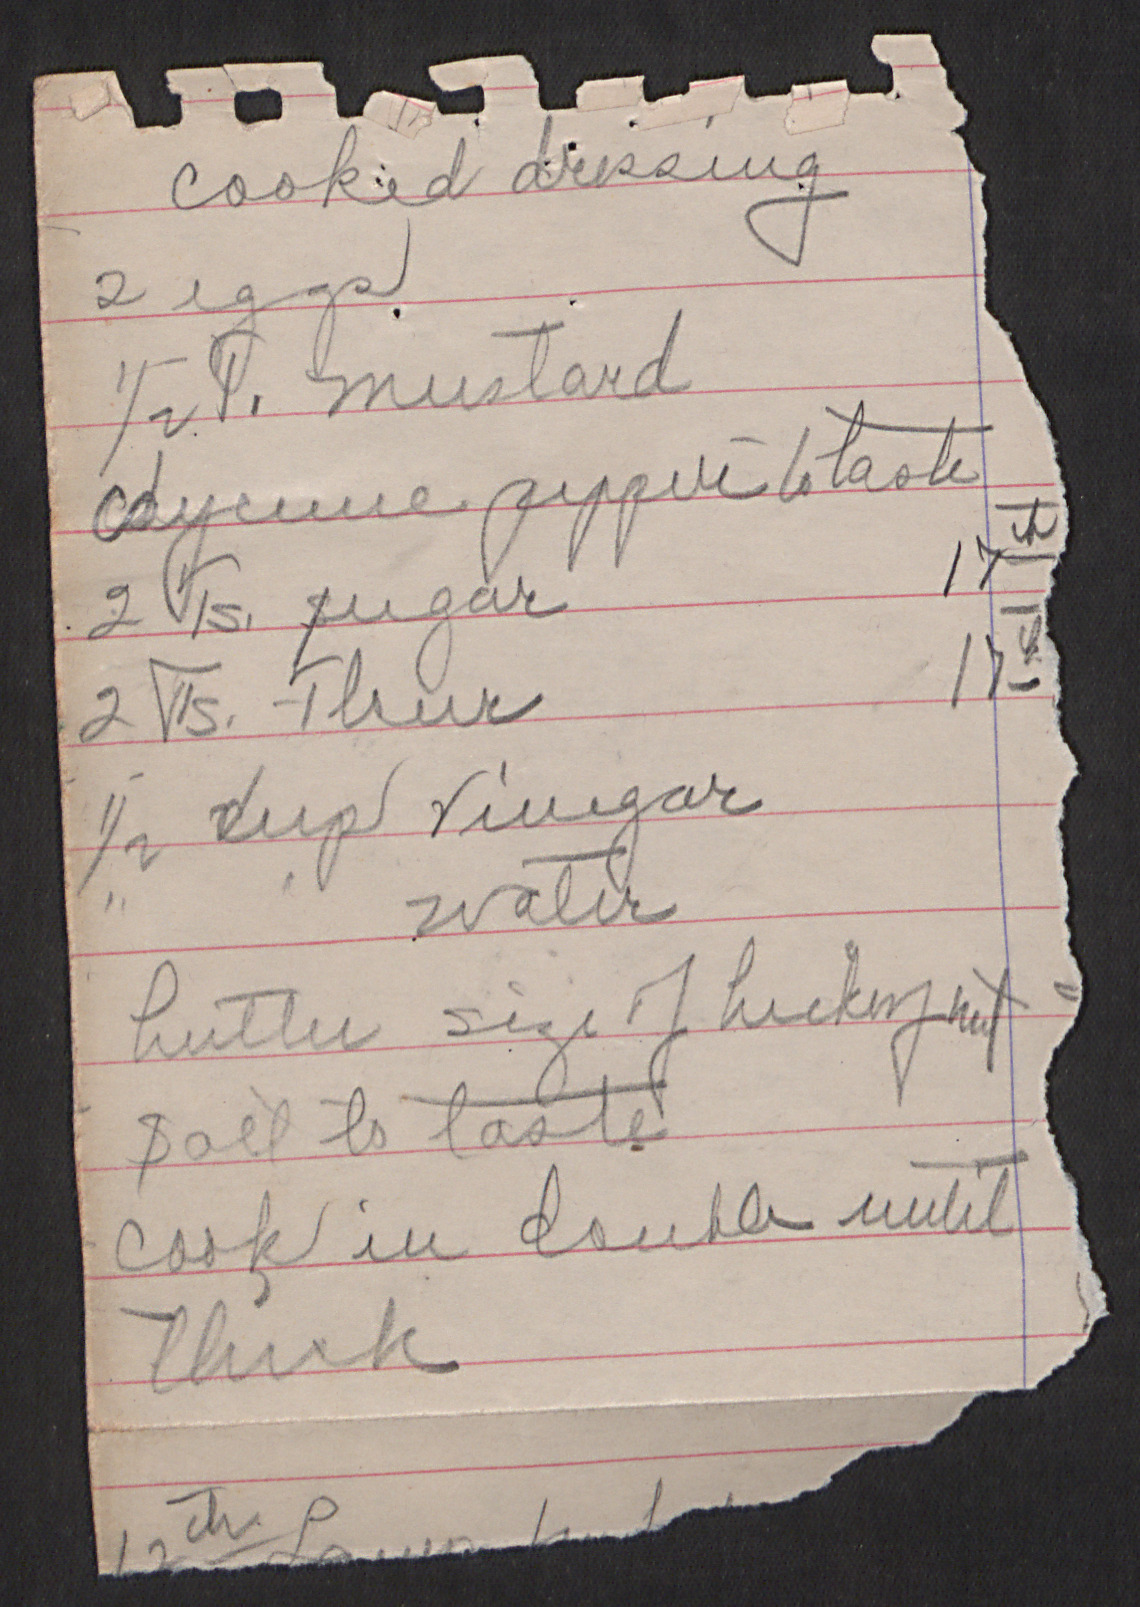 cooked dressing
2 eggs
1/2 T. mustard
Cayenne pepper to taste
2 Ts. sugar
17th
2 Ts. Flour
17th
1/2 cup vinegar
" " water
butter size of hickory nut =
salt to taste
cook in double until
Thick
12th